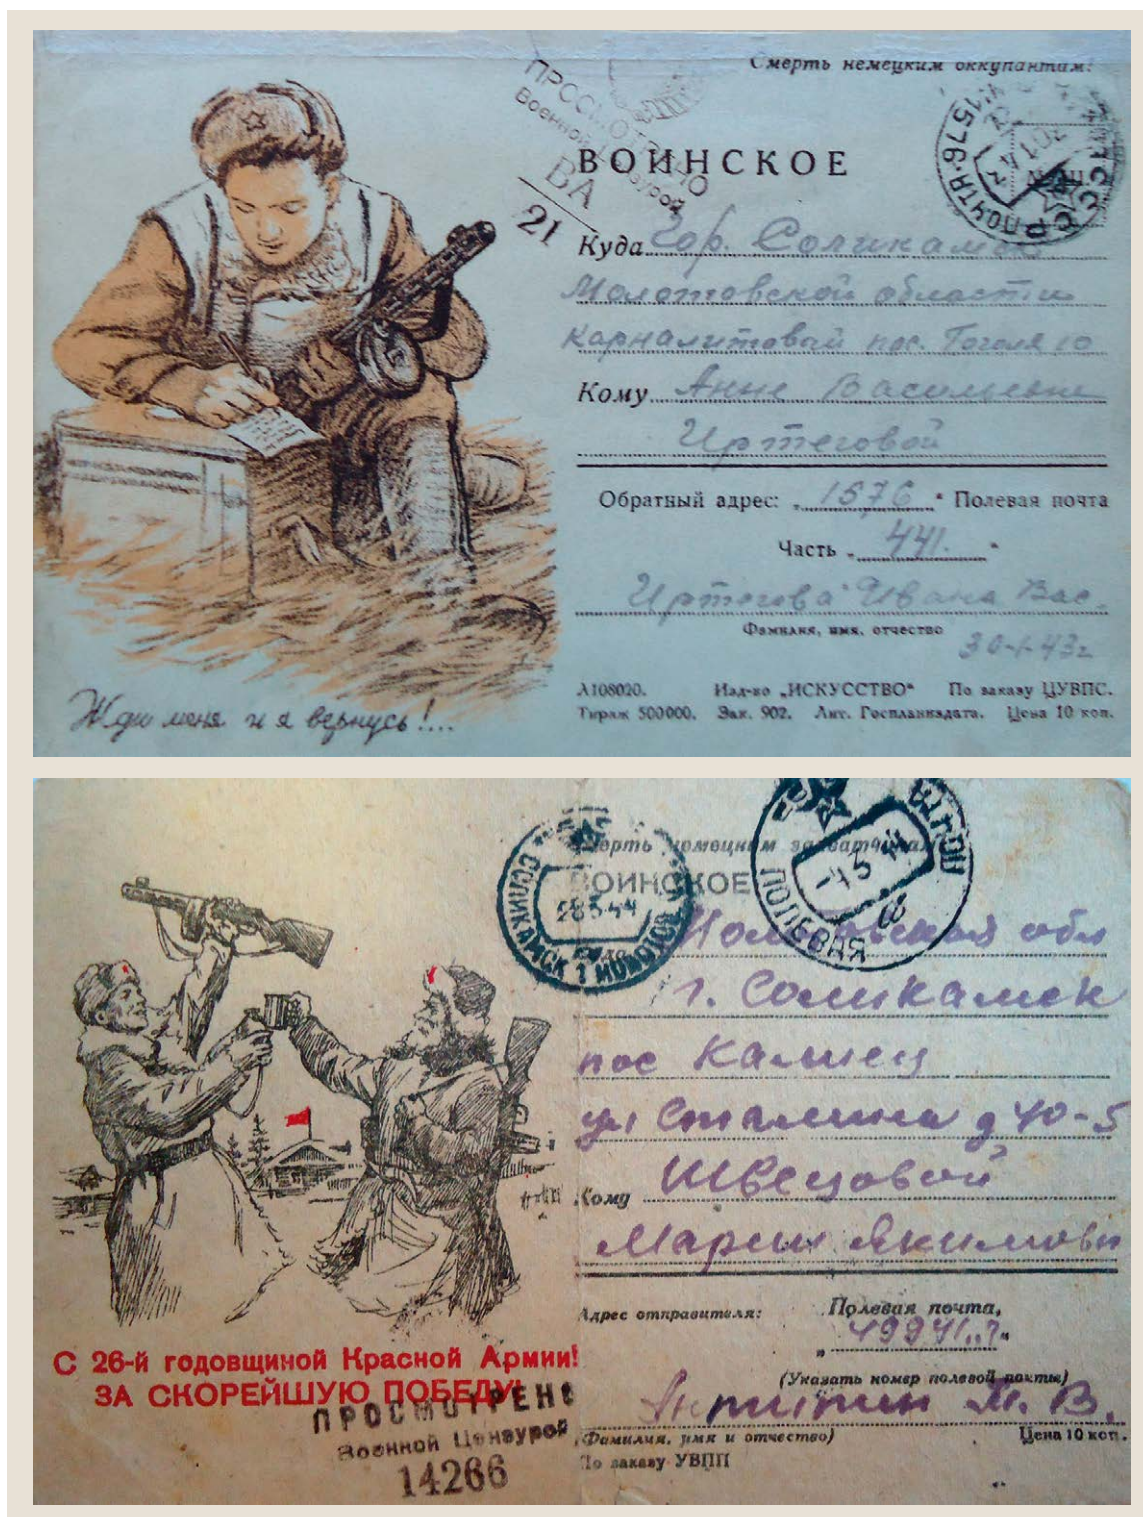 Смерть немецким оккупантам!
ПРОСМОТРЕНО
Военной Цензурой
ВА
21
ПОЧТА-1576
СССР
ВОИНСКОЕ
Куда Гор. Соликамск
Молотовской области
Карналитовый пос. Гоголя 10
Кому Анне Васильевне
Иртеговой
Обратный адрес: „1576“ Полевая почта
Часть „441.“
Иртегова Ивана Вас.
Фамилия, имя, отчество
30-1-43г
Жди меня и я вернусь!...
Л108020. Изд-во „ИСКУССТВО“ По заказу ЦУВПС.
Тираж 500000. Зак. 902. Лит. Госпланиздата. Цена 10 коп.
Смерть немецким захватчикам
ВОИНСКОЕ
СОЛИКАМСК 1 МОЛОТОВ
28 5 44
ПОЛЕВАЯ ПОЧТА
-4 5 44
Куда обл
г. Соликамск
пос Калиец
ул Сталина д 40-5
Кому Швецовой
Марии Якимовн
Адрес отправителя: Полевая почта,
(Указать номер полевой почты)
Антипин М. В.
(Фамилия, имя и отчество) Цена 10 коп.
По заказу УВПП
С 26-й годовщиной Красной Армии!
ЗА СКОРЕЙШУЮ ПОБЕДУ!
ПРОСМОТРЕНО
Военной Цензурой
14266